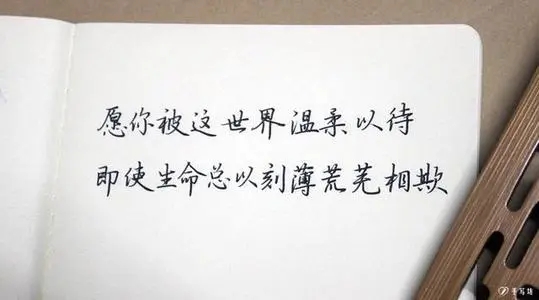 愿你被这世界温柔以待
即使生命总以刻薄荒芜相欺